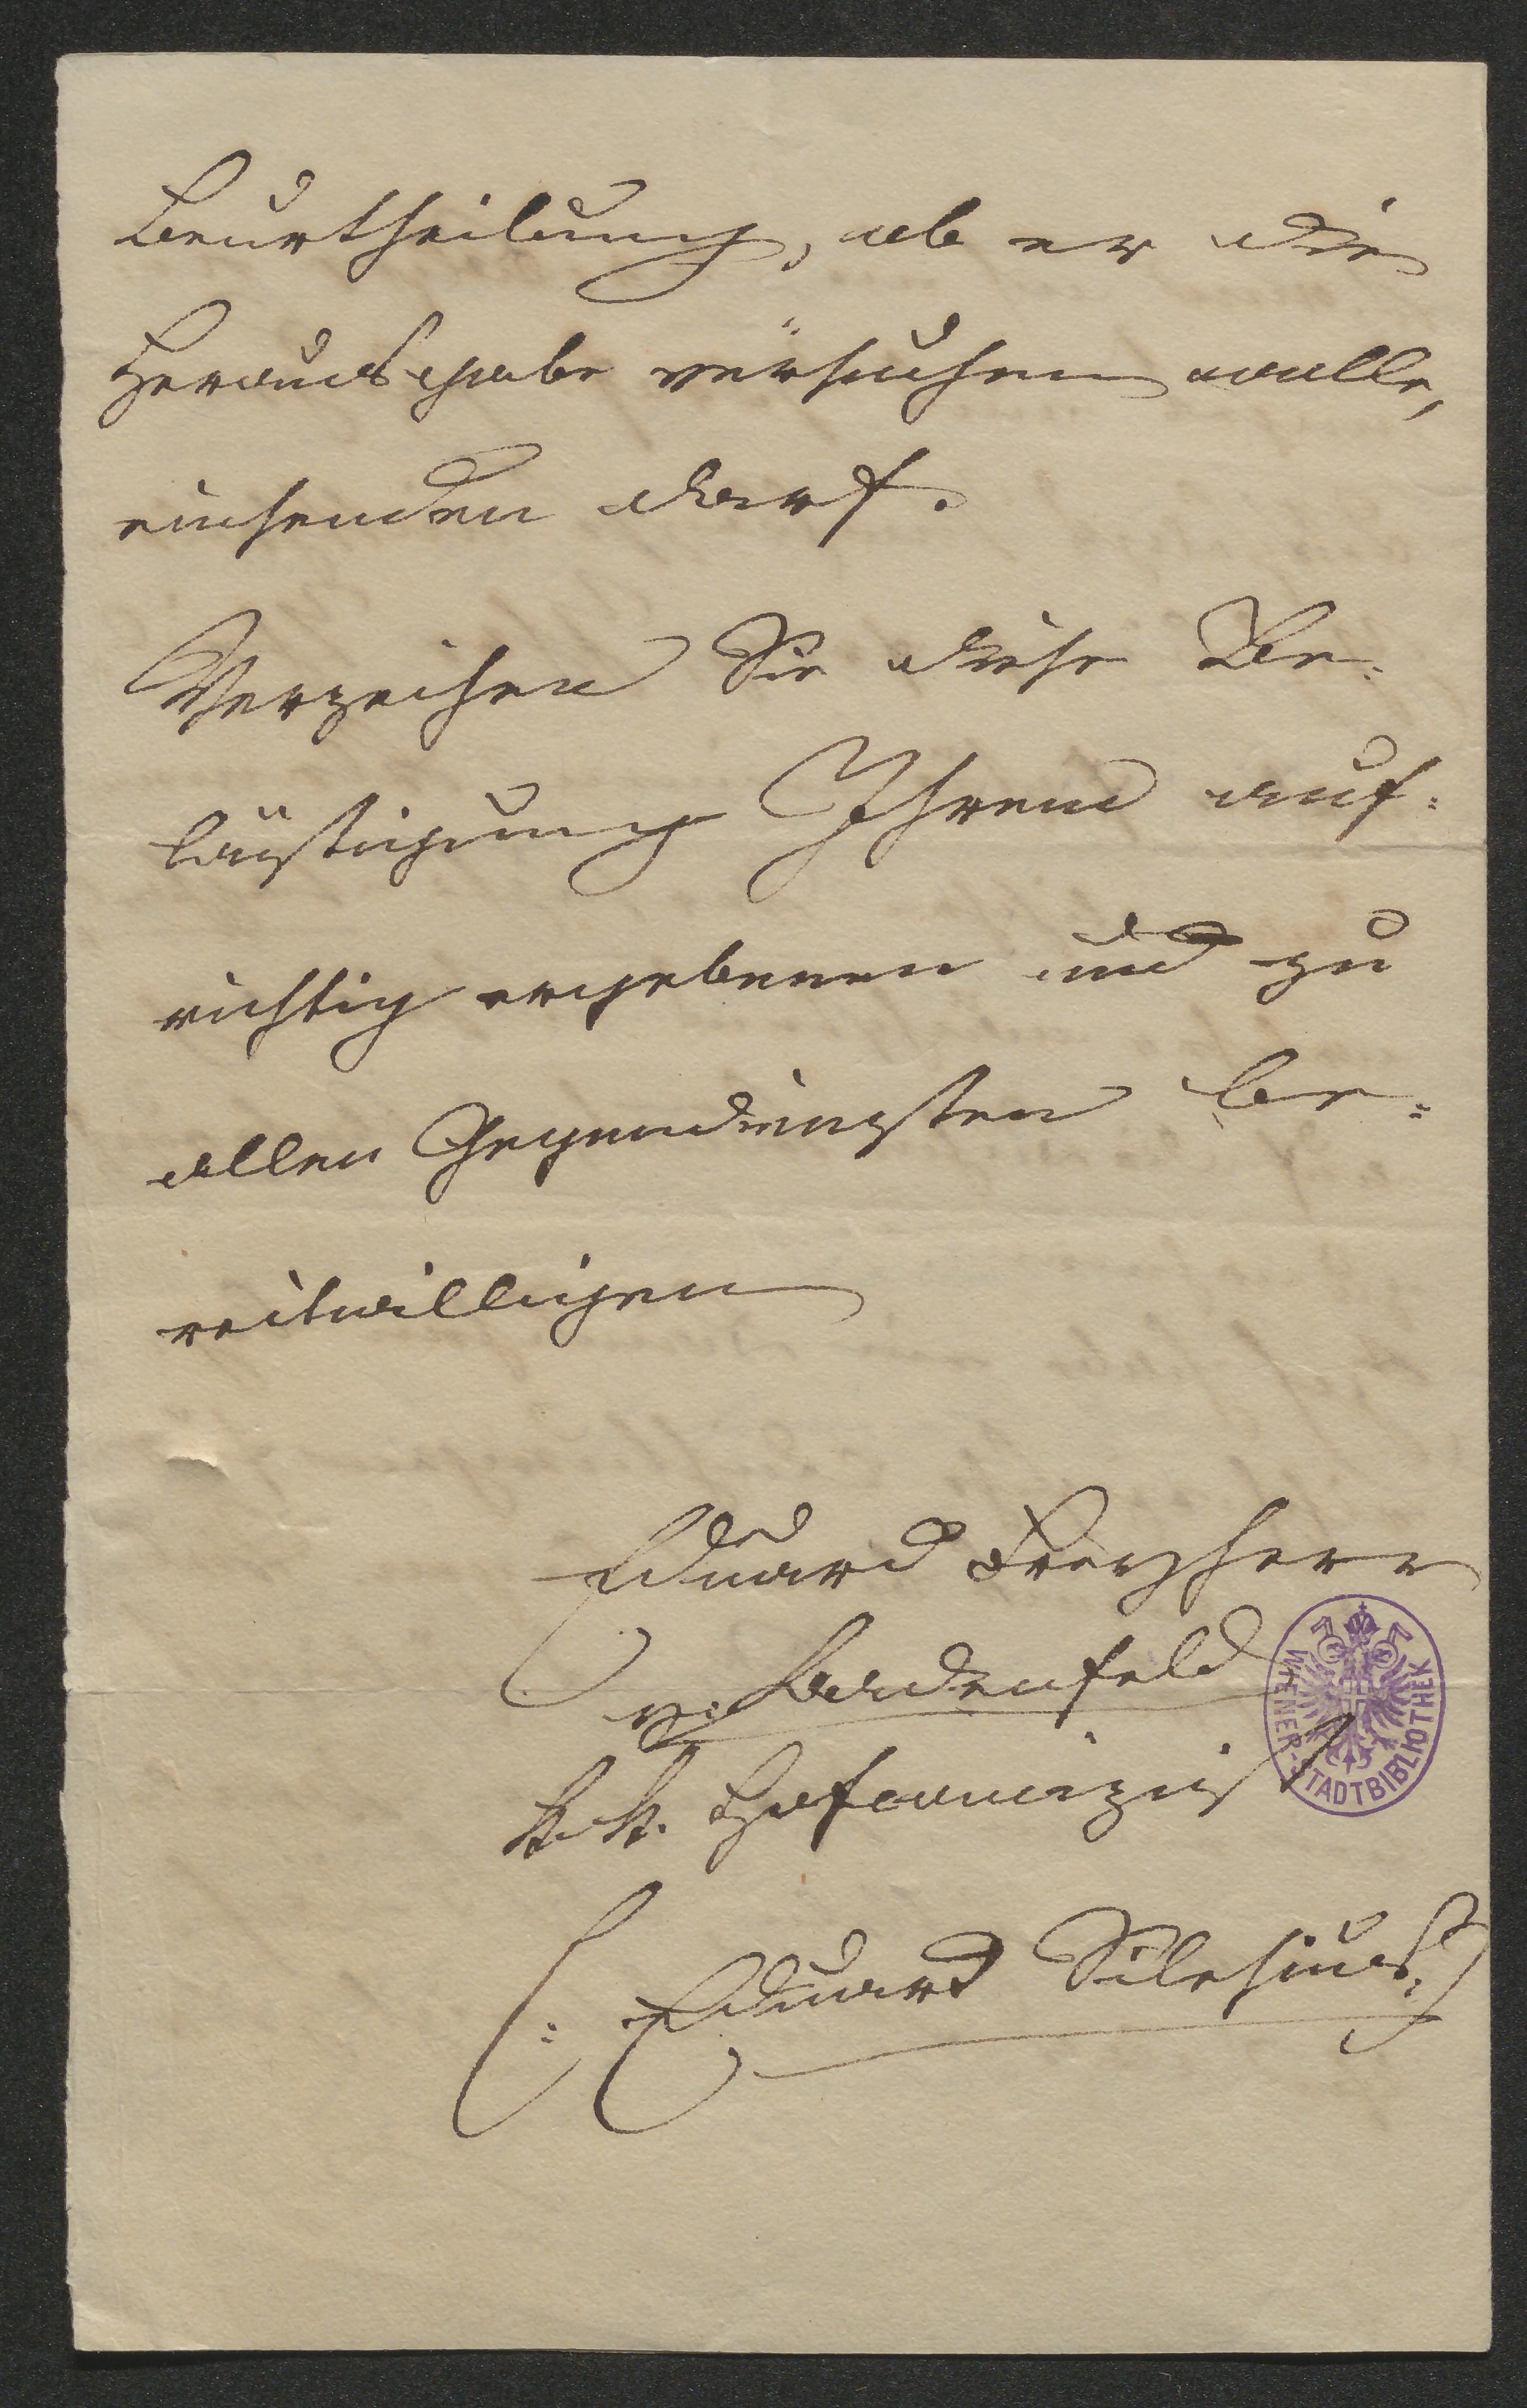 Beurtheilung, ob er die
Herausgabe versuchen wolle,
einsenden darf.
Verzeihen Sie diese Be=
lästigung Ihrem auf=
richtig ergebenen und zu
allen Gegendiensten be=
reitwilligen
Eduard Freyherr
v. Badenfeld
k. k. Hofconcipist
(: Eduard Silesius :)
WIENER-STADTBIBLIOTHEK